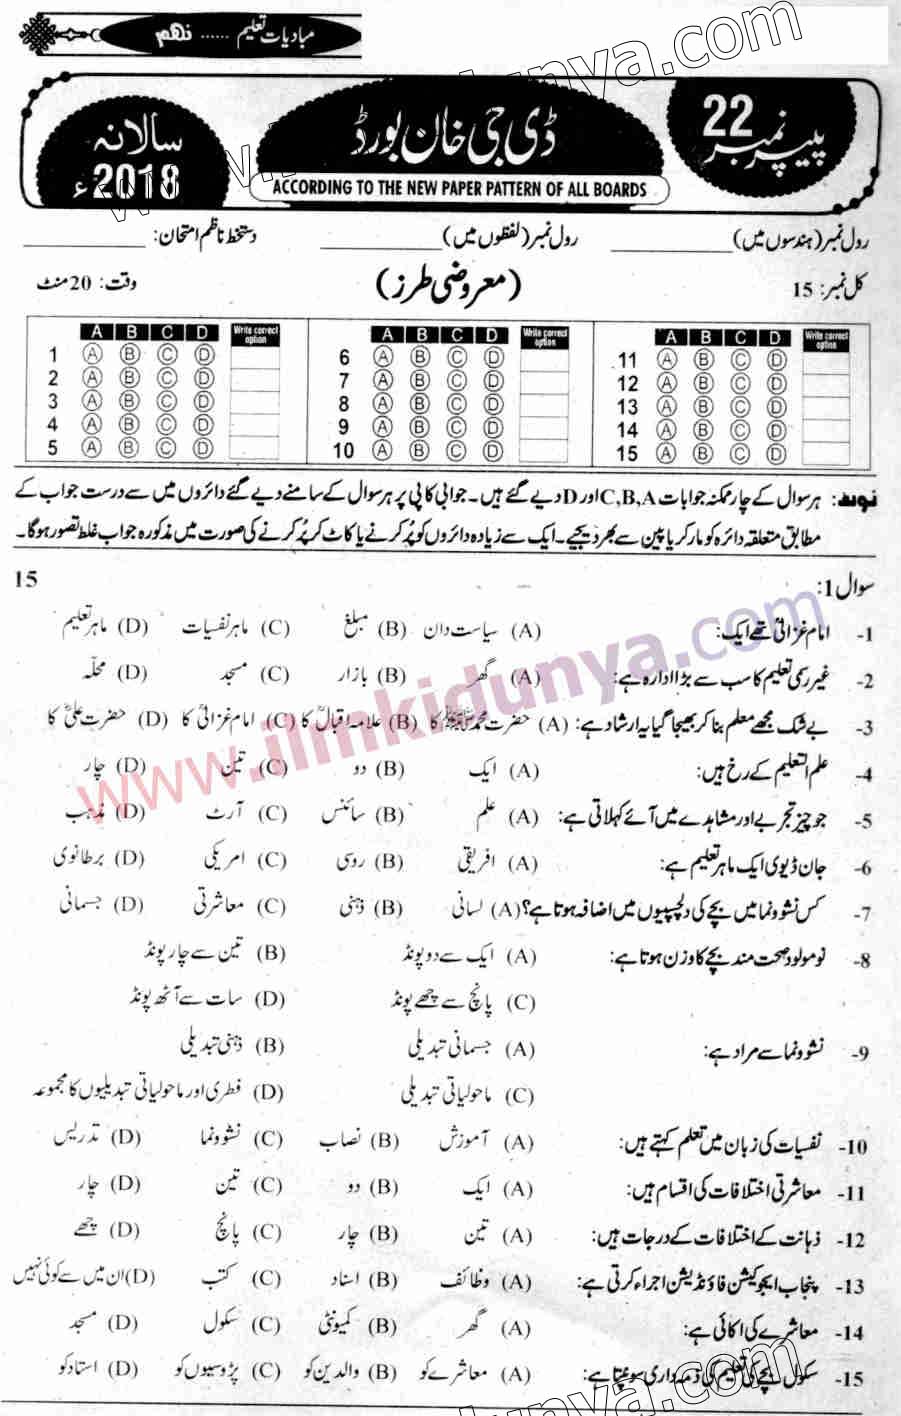 مبادیات تعلیم ...... نہم
پیپر نمبر 22
ڈی جی خان بورڈ
سالانہ 2018ء
ACCORDING TO THE NEW PAPER PATTERN OF ALL BOARDS
رول نمبر (ہندسوں میں) ____________ رول نمبر (لفظوں میں) ____________ دستخط ناظم امتحان: ____________
کل نمبر: 15 (معروضی طرز) وقت: 20 منٹ
A B C D Write correct option A B C D Write correct option A B C D Write correct option
1 A B C D 6 A B C D 11 A B C D
2 A B C D 7 A B C D 12 A B C D
3 A B C D 8 A B C D 13 A B C D
4 A B C D 9 A B C D 14 A B C D
5 A B C D 10 A B C D 15 A B C D
نوٹ: ہر سوال کے چار ممکنہ جوابات C,B,A اور D دیے گئے ہیں۔ جوابی کاپی پر ہر سوال کے سامنے دیے گئے دائروں میں سے درست جواب کے
مطابق متعلقہ دائرہ کو مارکر یا پین سے بھر دیجیے۔ ایک سے زیادہ دائروں کو پُر کرنے یا کاٹ کر پُر کرنے کی صورت میں مذکورہ جواب غلط تصور ہوگا۔
سوال 1: 15
1- امام غزالیؒ تھے ایک: (A) سیاست دان (B) مبلغ (C) ماہر نفسیات (D) ماہر تعلیم
2- غیر رسمی تعلیم کا سب سے بڑا ادارہ ہے: (A) گھر (B) بازار (C) مسجد (D) محلّہ
3- بے شک مجھے معلم بنا کر بھیجا گیا یہ ارشاد ہے: (A) حضرت محمد ﷺ کا (B) علامہ اقبالؒ کا (C) امام غزالیؒ کا (D) حضرت علیؓ کا
4- علم التعلیم کے رخ ہیں: (A) ایک (B) دو (C) تین (D) چار
5- جو چیز تجربے اور مشاہدے میں آئے کہلاتی ہے: (A) علم (B) سائنس (C) آرٹ (D) مذہب
6- جان ڈیوی ایک ماہر تعلیم ہے: (A) افریقی (B) روسی (C) امریکی (D) برطانوی
7- کس نشوونما میں بچے کی دلچسپیوں میں اضافہ ہوتا ہے؟ (A) لسانی (B) ذہنی (C) معاشرتی (D) جسمانی
8- نومولود صحت مند بچے کا وزن ہوتا ہے: (A) ایک سے دو پونڈ (B) تین سے چار پونڈ
(C) پانچ سے چھے پونڈ (D) سات سے آٹھ پونڈ
9- نشوونما سے مراد ہے: (A) جسمانی تبدیلی (B) ذہنی تبدیلی
(C) ماحولیاتی تبدیلی (D) فطری اور ماحولیاتی تبدیلیوں کا مجموعہ
10- نفسیات کی زبان میں تعلم کہتے ہیں: (A) آموزش (B) نصاب (C) نشوونما (D) تدریس
11- معاشرتی اختلافات کی اقسام ہیں: (A) ایک (B) دو (C) تین (D) چار
12- ذہانت کے اختلافات کے درجات ہیں: (A) تین (B) چار (C) پانچ (D) چھے
13- پنجاب ایجوکیشن فاؤنڈیشن اجراء کرتی ہے: (A) وظائف (B) اسناد (C) کتب (D) ان میں سے کوئی نہیں
14- معاشرے کی اکائی ہے: (A) گھر (B) کمیونٹی (C) سکول (D) مسجد
15- سکول بچے کی تعلیم کی ذمہ داری سونپتا ہے: (A) معاشرے کو (B) والدین کو (C) پڑوسیوں کو (D) استاد کو
www.ilmkidunya.com